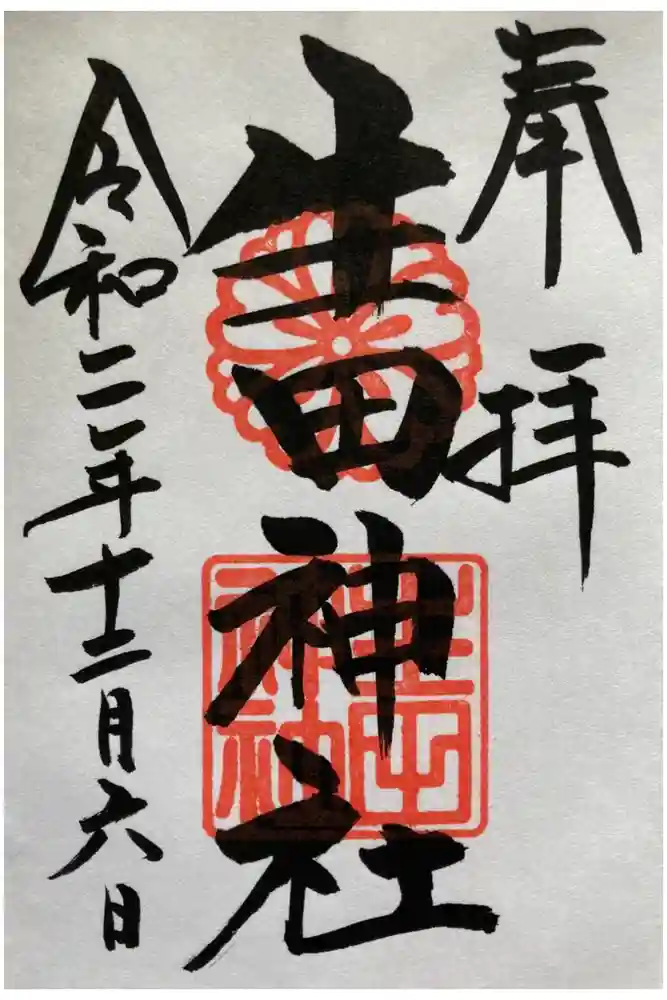 奉拝
生田神社
生田神社
令和二年十二月六日